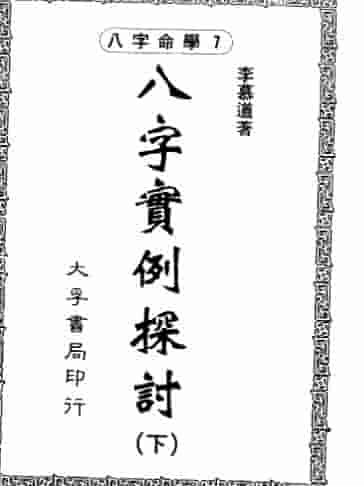 八字命學 7
李慕道著
八字實例探討
(下)
大孚書局印行